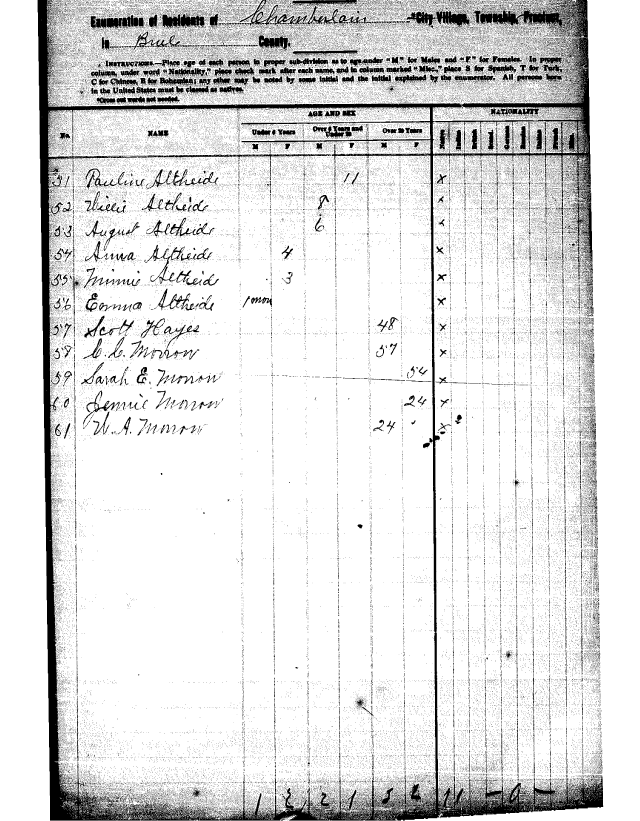 Enumeration of Residents of Chamberlain *City-Village, Township, Precinct,
In Brule County.
INSTRUCTIONS.—Place age of each person in proper sub-division as to age under "M" for Males and "F" for Females. In proper
column, under word "Nationality," place check mark after each name, and in column marked "Misc." place S for Spanish, T for Turk,
C for Chinese, B for Bohemian; any other may be noted by some initial and the initial explained by the enumerator. All persons born
in the United States must be classed as natives.
*Cross out words not needed.
AGE AND SEX NATIONALITY
No. NAME Under 6 Years Over 6 Years and Under 20 Over 20 Years
M F M F M F
51 Pauline Altheide 11 x
52 Willie Altheide 8 x
53 August Altheide 6 x
54 Anna Altheide 4 x
55 Minnie Altheide 3 x
56 Emma Altheide 1 mon x
57 Scott Hayes 48 x
58 C. C. Morrow 57 x
59 Sarah E. Morrow 54 x
60 Jennie Morrow 24 x
61 W. A. Morrow 24 x
1 2 2 1 3 2 11 – 0 –